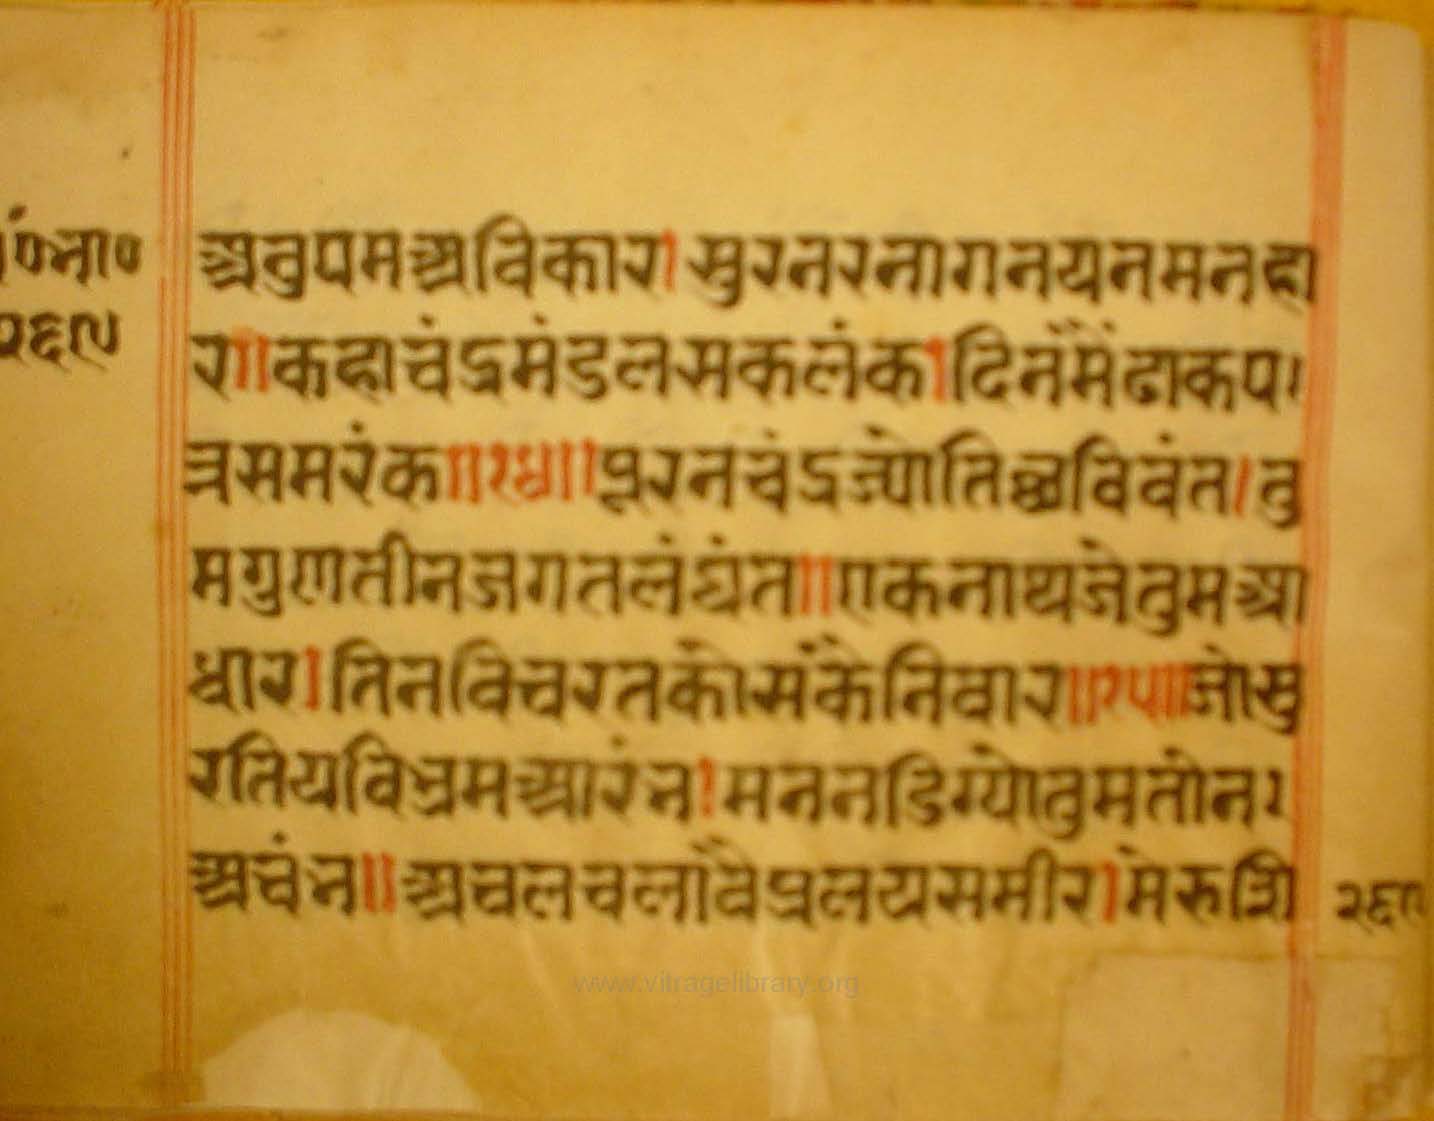 गुं॰ना॰
२६९
अनुपमअविकार।सुरनरनागनयनमनहा
र॥कहाचंद्रमंडलसकलंक।दिनमैंढाकप
त्रसमरंक॥१४॥पूरनचंद्रज्योतिछविवंत।तु
मगुणतीनजगतलंघंत॥एकनाथजेतुमआ
धार।तिनविचरतकोसकैनिवार॥१५॥जोसु
रतियविभ्रमआरंभ।मननडिग्योतुमतोन
अचंभ॥अचलचलावैप्रलयसमीर।मेरुशि
२६९
www.vitragelibrary.org